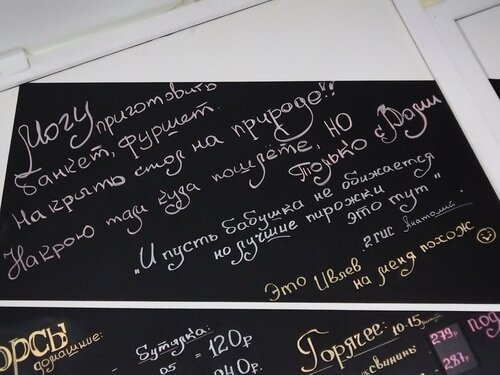 Могу приготовить
банкет, фуршет.
Накрыть стол на природе!!
Накрою там куда пошлёте, но
только с Вами
„И пусть бабушка не обижается
но лучшие пирожки
это тут"
2ГИС Анатолий
Это Ивлев
на меня похож
орсы
домашние:
Бутылка:
05 = 120р
940р.
Горячее: 10-15
свинины 279,
287,
под